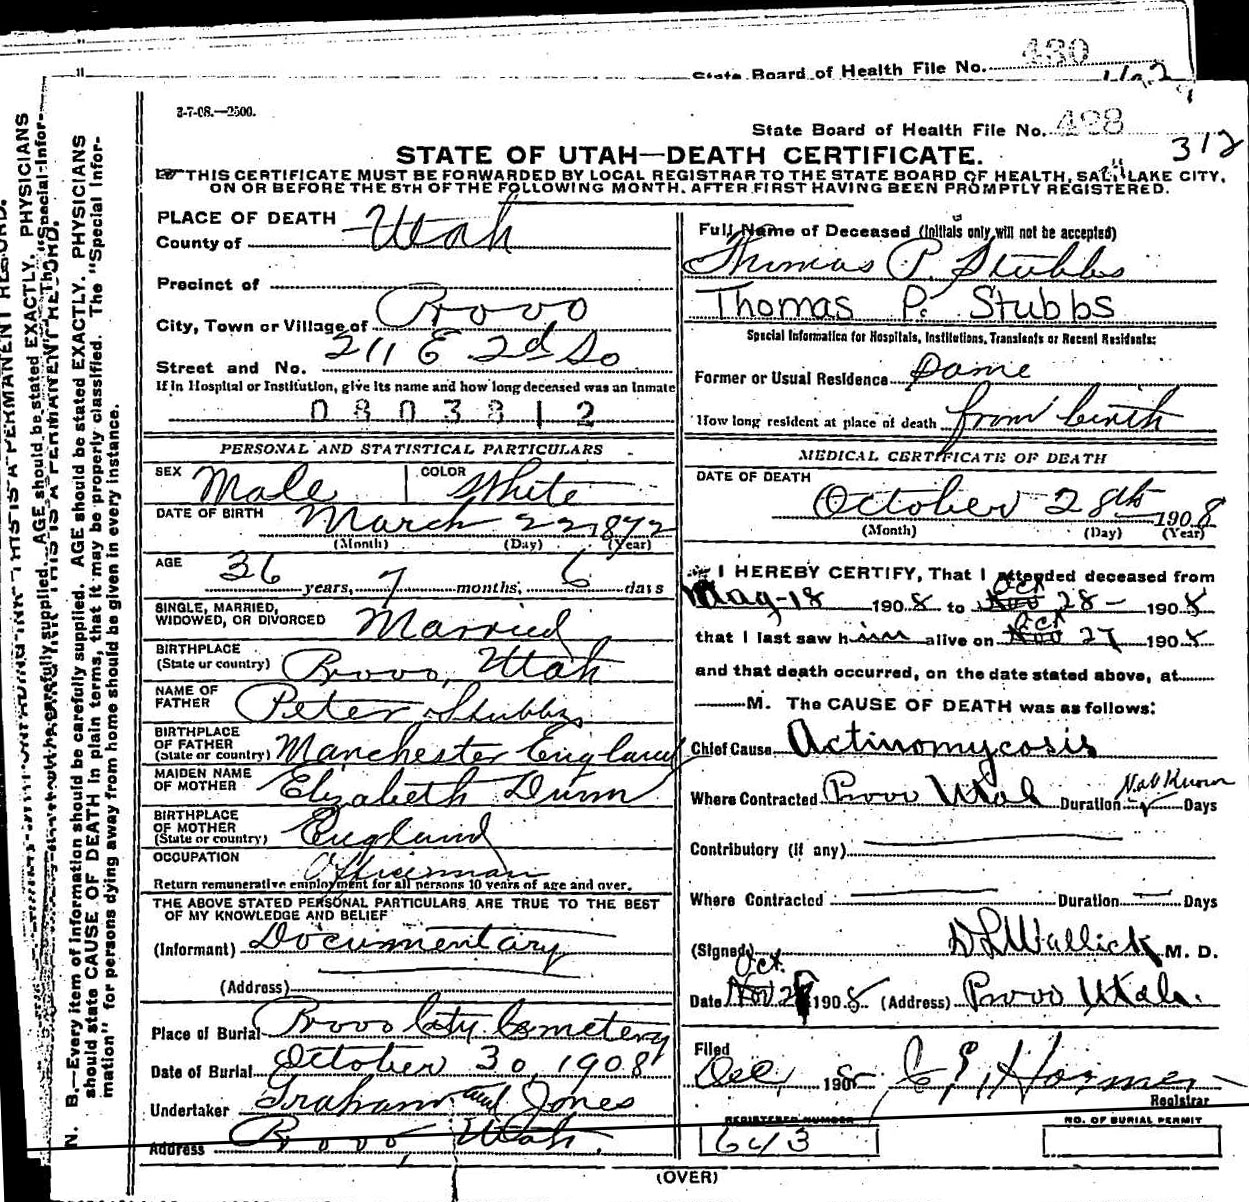 State Board of Health File No. 430
3-7-08.—2500.
State Board of Health File No. 428
312
STATE OF UTAH—DEATH CERTIFICATE.
THIS CERTIFICATE MUST BE FORWARDED BY LOCAL REGISTRAR TO THE STATE BOARD OF HEALTH, SALT LAKE CITY,
ON OR BEFORE THE 5TH OF THE FOLLOWING MONTH, AFTER FIRST HAVING BEEN PROMPTLY REGISTERED.
N. B.—Every item of information should be carefully supplied. AGE should be stated EXACTLY. PHYSICIANS
should state CAUSE OF DEATH in plain terms, that it may be properly classified. The "Special Infor-
mation" for persons dying away from home should be given in every instance.
PLACE OF DEATH
County of Utah
Precinct of
City, Town or Village of Provo
Street and No. 211 E 2d So
If in Hospital or Institution, give its name and how long deceased was an Inmate
0803812
PERSONAL AND STATISTICAL PARTICULARS
SEX Male COLOR White
DATE OF BIRTH March 22 1872
(Month) (Day) (Year)
AGE 36 years, 7 months, 6 days
SINGLE, MARRIED,
WIDOWED, OR DIVORCED Married
BIRTHPLACE
(State or country) Provo, Utah
NAME OF
FATHER Peter Stubbs
BIRTHPLACE
OF FATHER
(State or country) Manchester England
MAIDEN NAME
OF MOTHER Elizabeth Dunn
BIRTHPLACE
OF MOTHER
(State or country) England
OCCUPATION
Return remunerative employment for all persons 10 years of age and over.
THE ABOVE STATED PERSONAL PARTICULARS ARE TRUE TO THE BEST
OF MY KNOWLEDGE AND BELIEF
(Informant) Documentary
(Address)
Place of Burial Provo City Cemetery
Date of Burial October 30, 1908
Undertaker Graham and Jones
Address Provo Utah.
Full Name of Deceased (Initials only will not be accepted)
Thomas P. Stubbs
Thomas P. Stubbs
Special Information for Hospitals, Institutions, Transients or Recent Residents:
Former or Usual Residence Same
How long resident at place of death from birth
MEDICAL CERTIFICATE OF DEATH
DATE OF DEATH
October 28th 1908
(Month) (Day) (Year)
I HEREBY CERTIFY, That I attended deceased from
Aug-18 1908 to Nov Oct 28- 1908
that I last saw him alive on Nov Oct 27 1908
and that death occurred, on the date stated above, at
M. The CAUSE OF DEATH was as follows:
Chief Cause Actinomycosis
Where Contracted Provo Utah Duration Not Known Days
Contributory (if any)
Where Contracted Duration Days
(Signed) D L Wallick M. D.
Date Nov Oct. 28 1908 (Address) Provo Utah.
Filed
Dec, 1908 Registrar
REGISTERED NUMBER
643
NO. OF BURIAL PERMIT
(OVER)